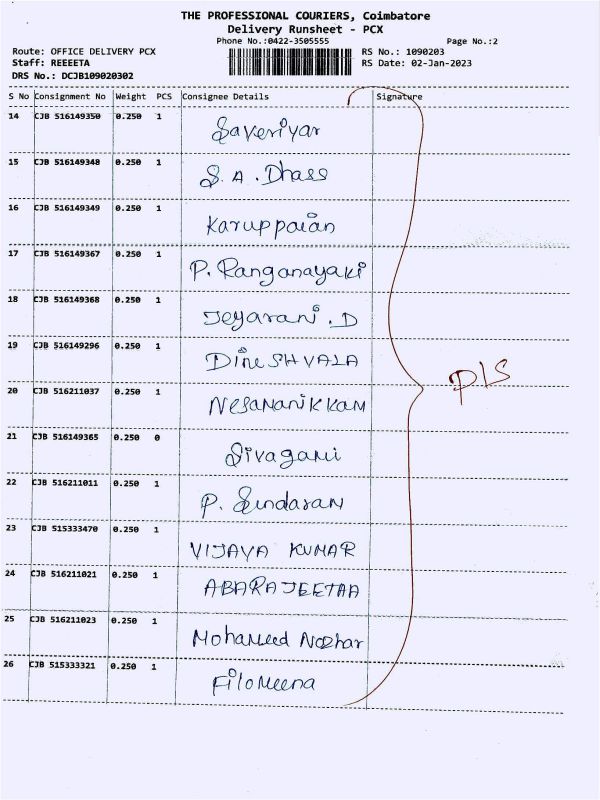 THE PROFESSIONAL COURIERS, Coimbatore
Delivery Runsheet - PCX
Phone No.:0422-3505555
Page No.:2
Route: OFFICE DELIVERY PCX
RS No.: 1090203
Staff: REEEETA
RS Date: 02-Jan-2023
DRS No.: DCJB109020302
S No Consignment No Weight PCS Consignee Details Signature
14 CJB 516149350 0.250 1 Saveriyar
15 CJB 516149348 0.250 1 S. A. Dhass
16 CJB 516149349 0.250 1 Karuppaian
17 CJB 516149367 0.250 1 P. Ranganayaki
18 CJB 516149368 0.250 1 Jeyarani. D
19 CJB 516149296 0.250 1 DineSHVALA
20 CJB 516211037 0.250 1 NesaManikkam
21 CJB 516149365 0.250 0 Sivagami
22 CJB 516211011 0.250 1 P. Sundaram
23 CJB 515333470 0.250 1 VIJAYA KUMAR
24 CJB 516211021 0.250 1 ABARAJEETAA
25 CJB 516211023 0.250 1 Mohameed
26 CJB 515333321 0.250 1 Filomeena